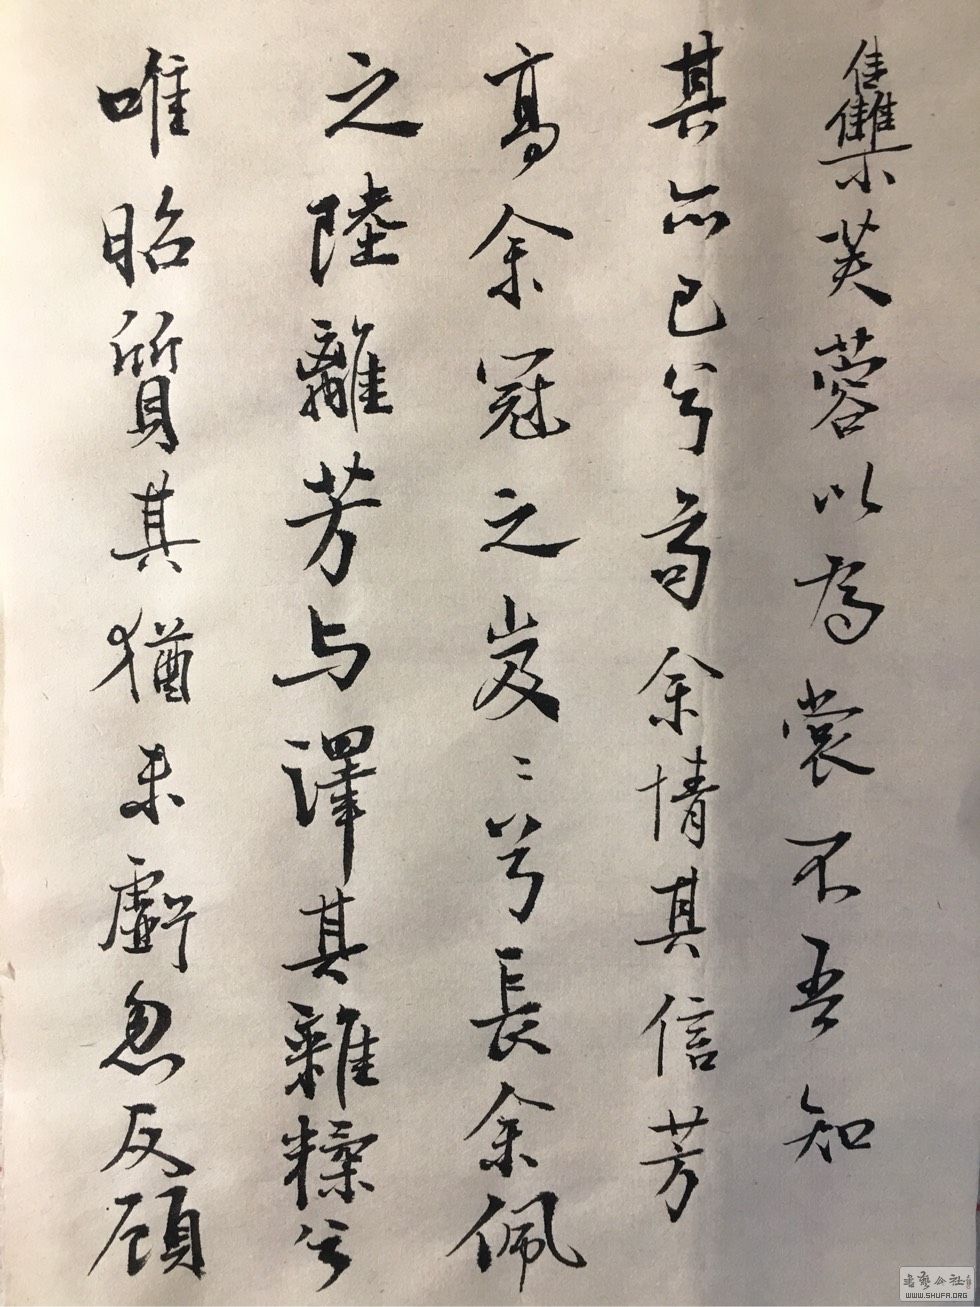 雧芙蓉以為裳不吾知
其亦已兮苟余情其信芳
高余冠之岌〻兮長余佩
之陸離芳与澤其雜糅兮
唯昭質其猶未虧忽反顧
書藝公社
WWW.SHUFA.ORG